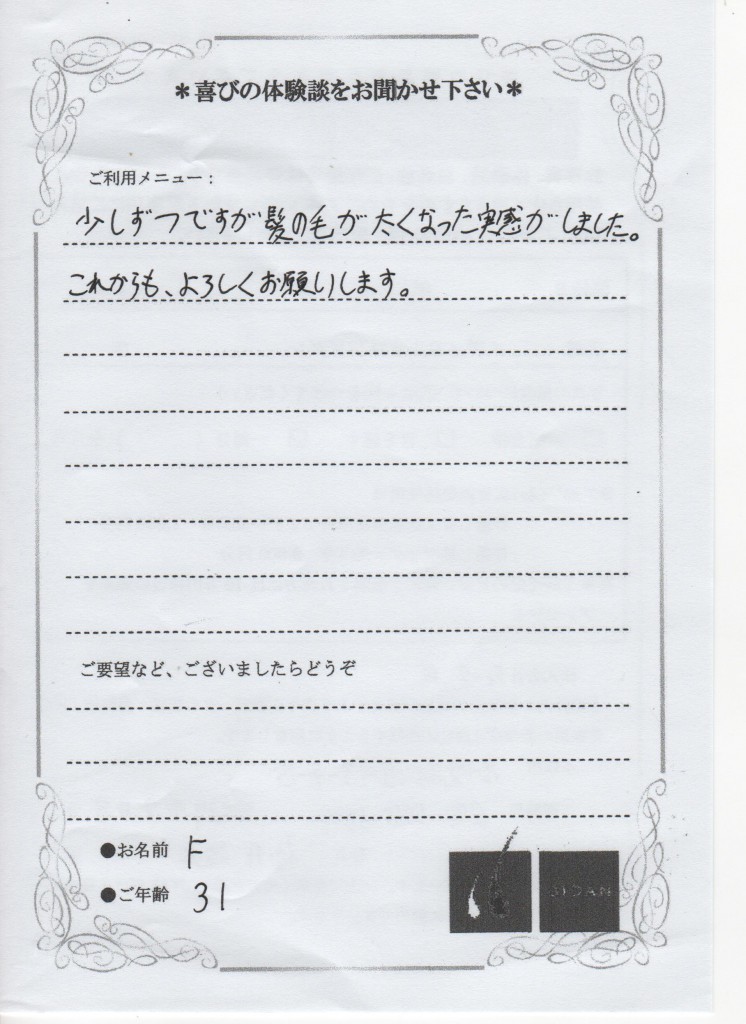 ＊喜びの体験談をお聞かせ下さい＊
ご利用メニュー：
少しずつですが髪の毛が太くなった実感がしました。
これからも、よろしくお願いします。
ご要望など、ございましたらどうぞ
●お名前 F
●ご年齢 31